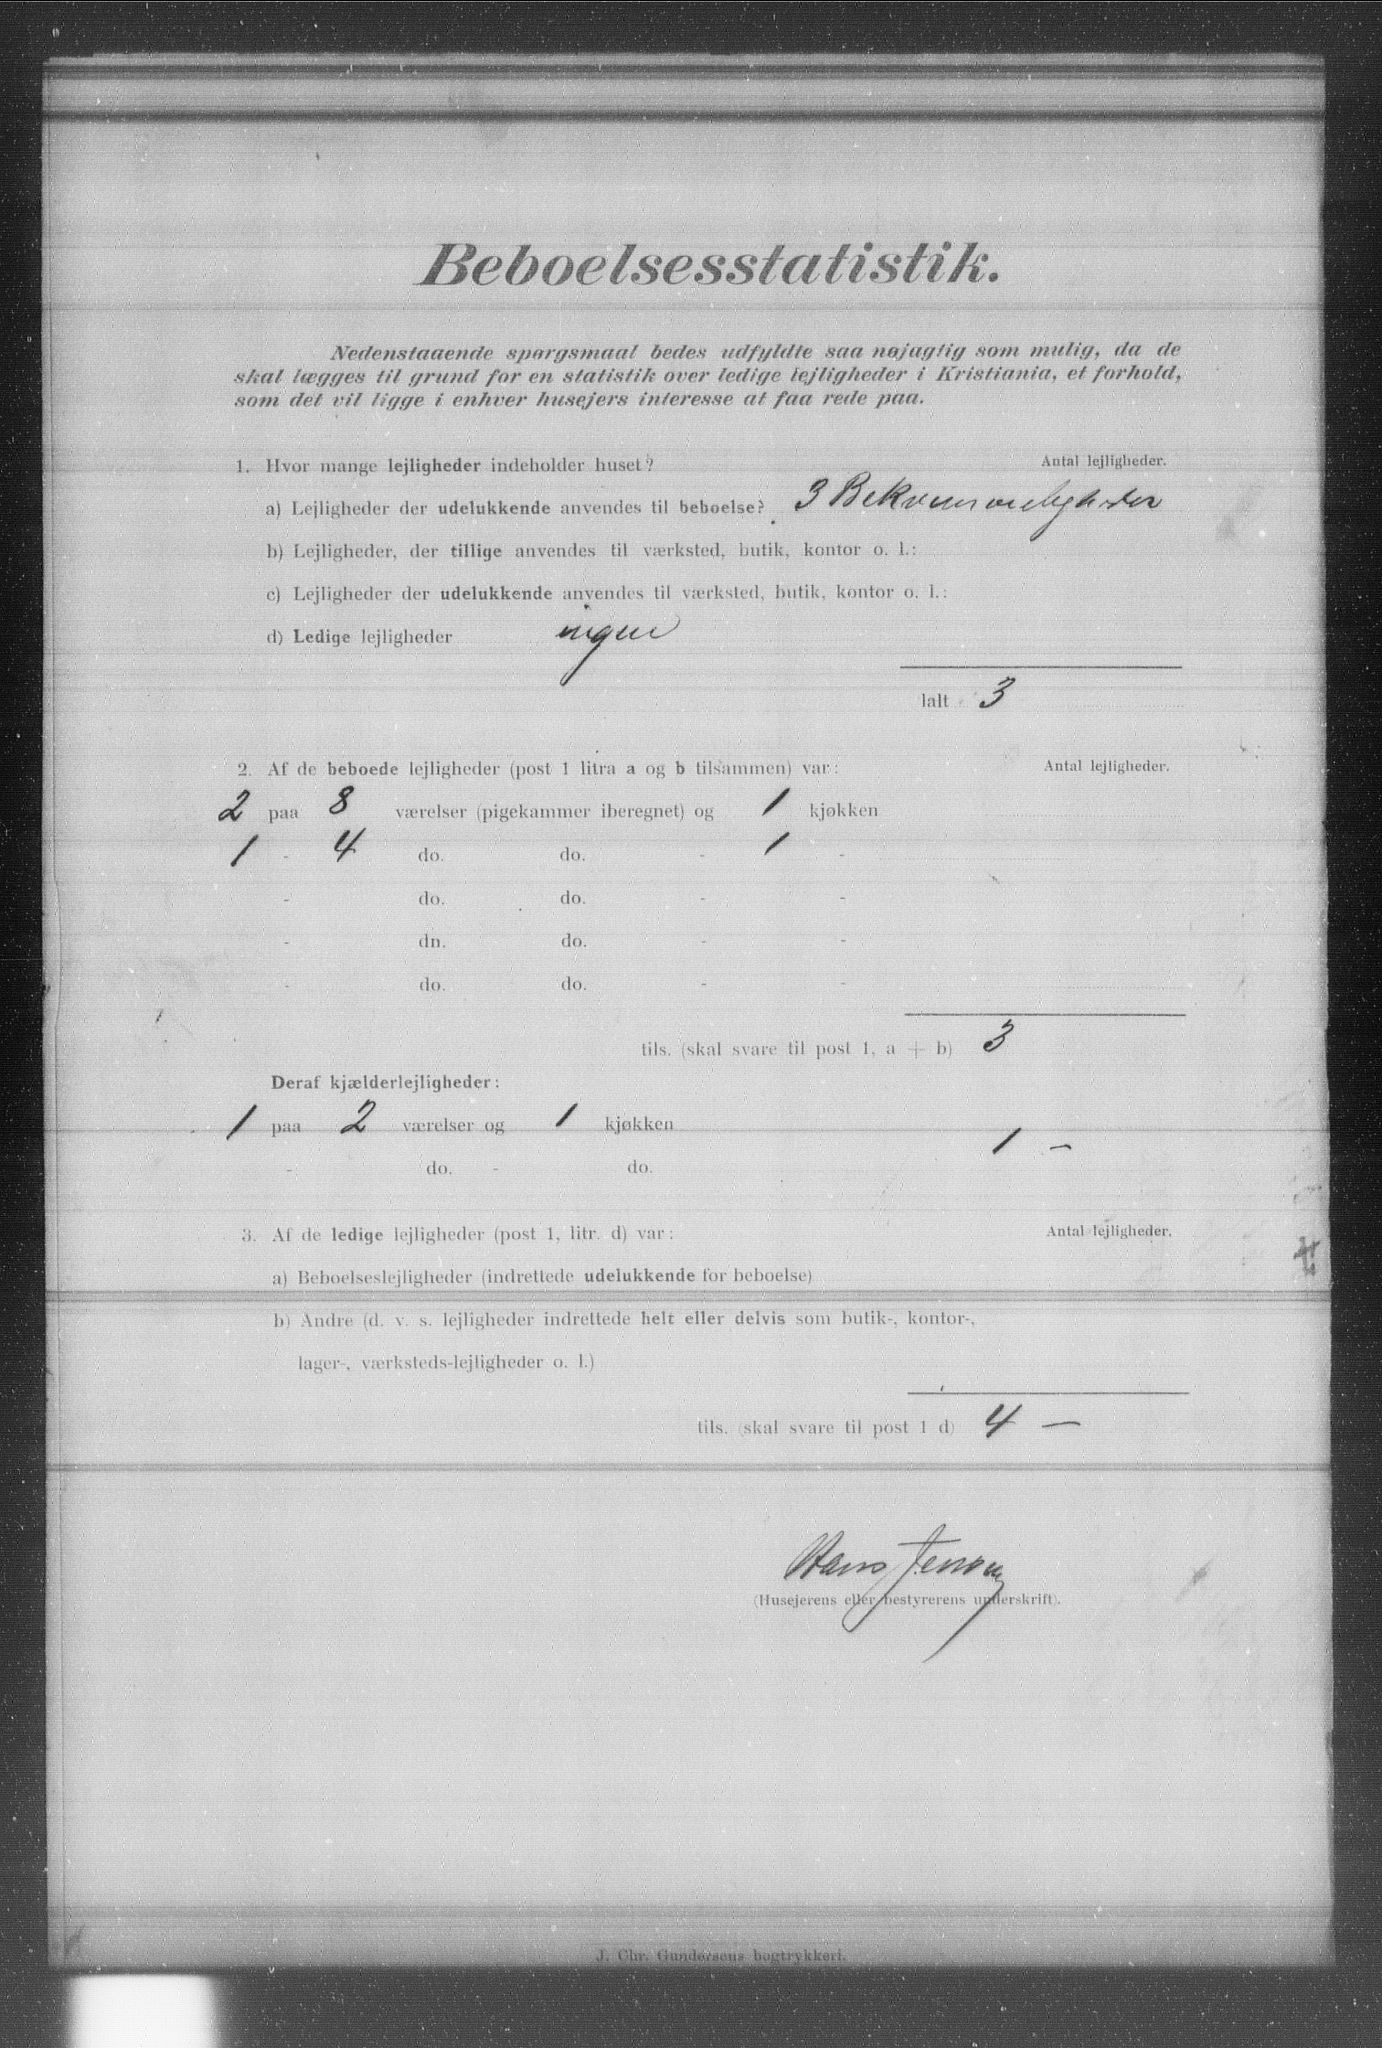 Beboelsesstatistik.
Nedenstaaende spørgsmaal bedes udfyldte saa nøjagtig som mulig, da de
skal lægges til grund for en statistik over ledige lejligheder i Kristiania, et forhold,
som det vil ligge i enhver husejers interesse at faa rede paa.
1. Hvor mange lejligheder indeholder huset? Antal lejligheder.
a) Lejligheder der udelukkende anvendes til beboelse? 3 Bekvemmeligheder
b) Lejligheder, der tillige anvendes til værksted, butik, kontor o. l.:
c) Lejligheder der udelukkende anvendes til værksted, butik, kontor o. l.:
d) Ledige lejligheder ingen
Ialt 3
2. Af de beboede lejligheder (post 1 litra a og b tilsammen) var: Antal lejligheder.
2 paa 8 værelser (pigekammer iberegnet) og 1 kjøkken
1 - 4 do. do. - 1 -
- do. do. - -
- dn. do. - -
- do. do. - -
tils. (skal svare til post 1, a + b) 3
Deraf kjælderlejligheder:
1 paa 2 værelser og 1 kjøkken 1 -
- do. - do.
3. Af de ledige lejligheder (post 1, litr. d) var: Antal lejligheder.
a) Beboelseslejligheder (indrettede udelukkende for beboelse)
b) Andre (d. v. s. lejligheder indrettede helt eller delvis som butik-, kontor-,
lager-, værksteds-lejligheder o. l.)
tils. (skal svare til post 1 d) 4 —
Hans Jenson
(Husejerens eller bestyrerens underskrift).
J. Chr. Gundersens bogtrykkeri.